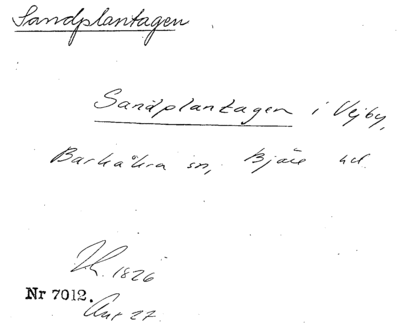 Sandplantagen
Sandplantagen i Vejby,
Barkåkra sn, Bjäre hd.
1826
Nr 7012.
27.